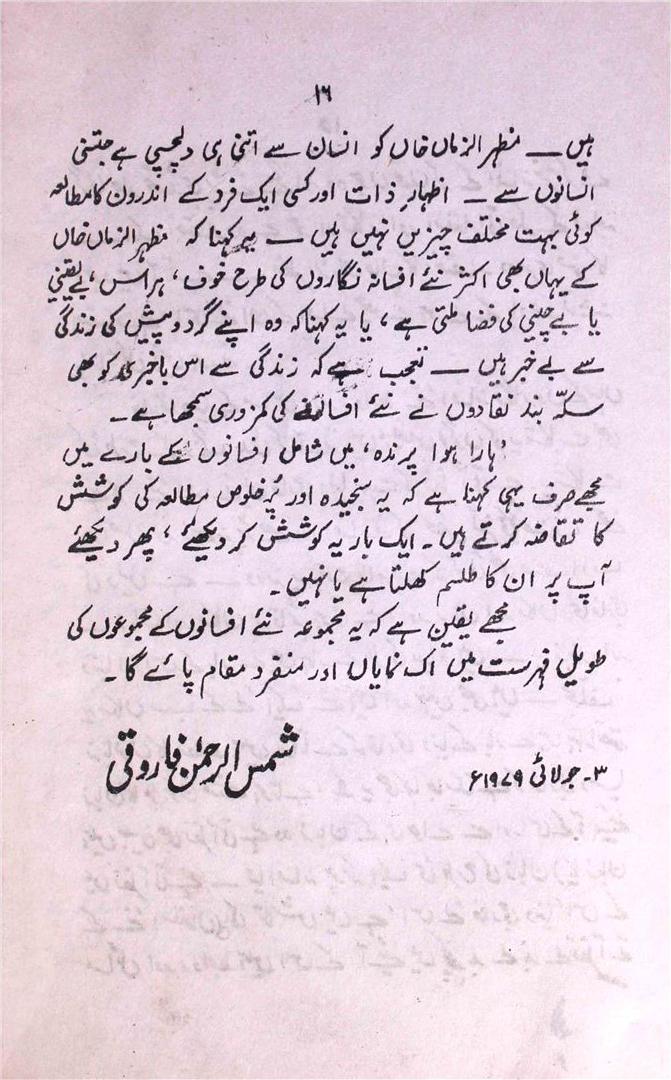 ۱۶
ہیں ــ مظہر الزماں خاں کو انسان سے اتنی ہی دلچسپی ہے جتنی
انسانوں سے ــ اظہارِ ذات اور کسی ایک فرد کے اندرون کا مطالعہ
کوئی بہت مختلف چیزیں نہیں ہیں ــ یہ کہنا کہ مظہر الزماں خاں
کے یہاں بھی اکثر نئے افسانہ نگاروں کی طرح خوف، ہراس، بے یقینی
یا بے چینی کی فضا ملتی ہے، یا یہ کہنا کہ وہ اپنے گرد و پیش کی زندگی
سے بے خبر ہیں ــ تعجب ہے کہ زندگی سے اس باخبری کو بھی
سکّہ بند نقادوں نے نئے افسانے کی کمزوری سمجھا ہے۔
'ہارا ہوا پرندہ' میں شامل افسانوں کے بارے میں
مجھے صرف یہی کہنا ہے کہ یہ سنجیدہ اور پُرخلوص مطالعہ کی کوشش
کا تقاضہ کرتے ہیں۔ ایک بار یہ کوشش کر دیکھئے، پھر دیکھئے
آپ پر ان کا طلسم کھلتا ہے یا نہیں۔
مجھے یقین ہے کہ یہ مجموعہ نئے افسانوں کے مجموعوں کی
طویل فہرست میں اک نمایاں اور منفرد مقام پائے گا۔
شمس الرحمٰن فاروقی
۳۔ جولائی ۱۹۷۹ء